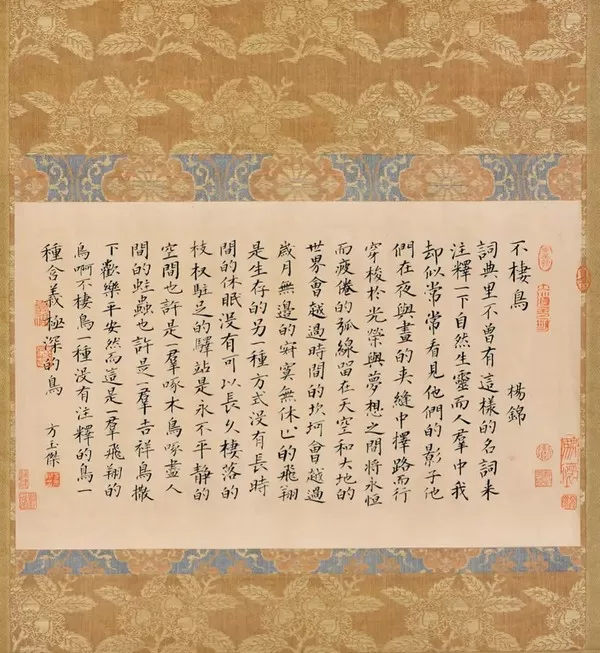 不棲鳥 楊錦
詞典里不曾有這樣的名詞来
注釋一下自然生靈而人羣中我
却似常常看見他們的影子他
們在夜與晝的夹縫中擇路而行
穿梭於光榮與夢想之間將永恒
而疲倦的弧線留在天空和大地的
世界會越過時間的坎坷會越過
歲月無邊的寂寞無休止的飛翔
是生存的另一種方式没有長時
間的休眠没有可以長久棲落的
枝杈駐足的驛站是永不平静的
空間也許是一羣啄木鳥啄盡人
間的蛀蟲也許是一羣吉祥鳥撒
下歡樂平安然而這是一羣飛翔的
鳥啊不棲鳥一種没有注釋的鳥一
種含義極深的鳥 方玉傑